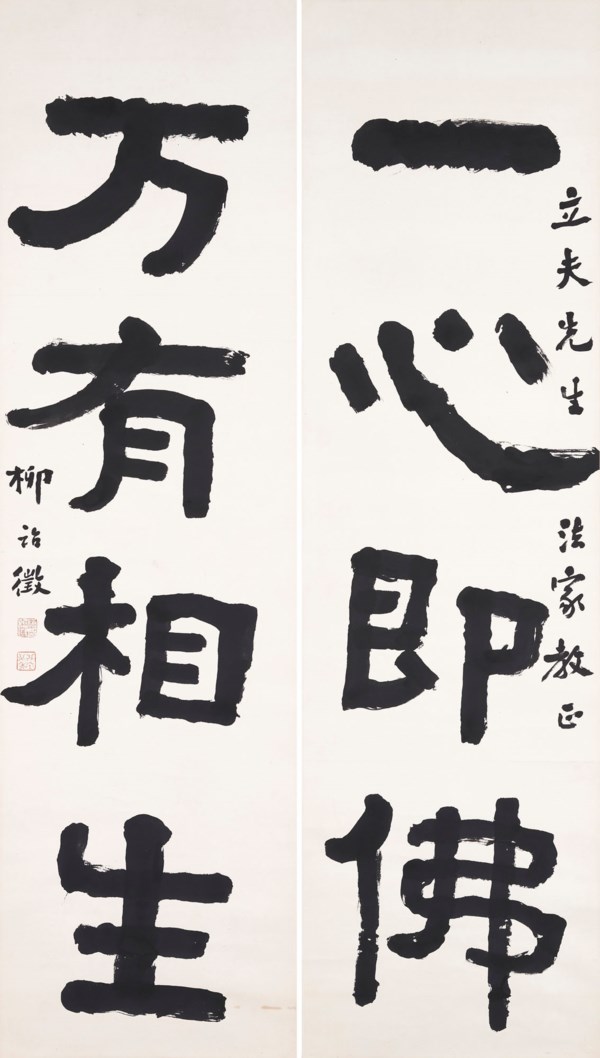 一心即佛
立夫先生 法家教正
万有相生
柳詒徵